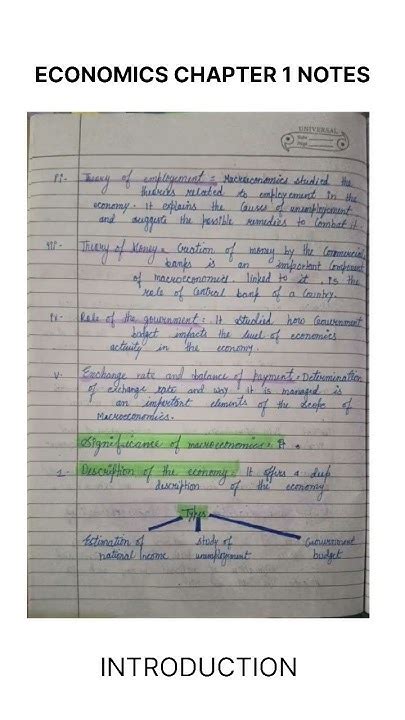 ECONOMICS CHAPTER 1 NOTES
UNIVERSAL
Date
Page
Theory of employement : Macroeconomics studied the
theories related to employement in the
economy. It explains the causes of unemployment
and suggets the possible remedies to combat it
Theory of Money : Creation of money by the Commercial
banks is an important Component
of macroeconomics. linked to it is the
role of Central bank of a Country.
Role of the government : It studied how Government
budget impacts the level of economics
activity in the economy.
v. Exchange rate and balance of payment : Determination
of exchange rate and way it is managed is
an important elements of the scope of
Macroeconomics.
Significance of macroeconomics :
1. Description of the economy : It offers a deep
description of the economy
Types
Estimation of study of Government
national Income unemployment budget
INTRODUCTION